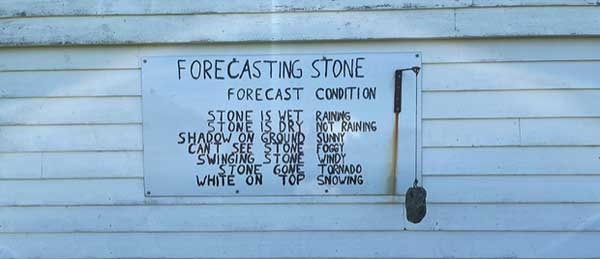 FORECASTING STONE
FORECAST CONDITION
STONE IS WET RAINING
STONE IS DRY NOT RAINING
SHADOW ON GROUND SUNNY
CAN'T SEE STONE FOGGY
SWINGING STONE WINDY
STONE GONE TORNADO
WHITE ON TOP SNOWING